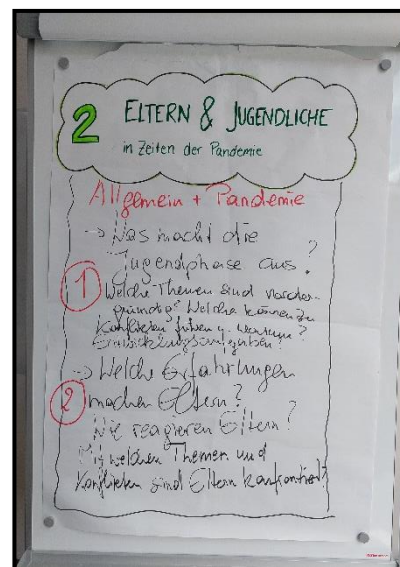 2 ELTERN & JUGENDLICHE
in Zeiten der Pandemie
Allgemein + Pandemie
→ Was macht die
Jugendphase aus?
1 Welche Themen sind vorder-
gründig? Welche können zu
Konflikten führen u. warum?
Entwicklungsaufgaben?
→ Welche Erfahrungen
2 machen Eltern?
Wie reagieren Eltern?
Mit welchen Themen und
Konflikten sind Eltern konfrontiert?